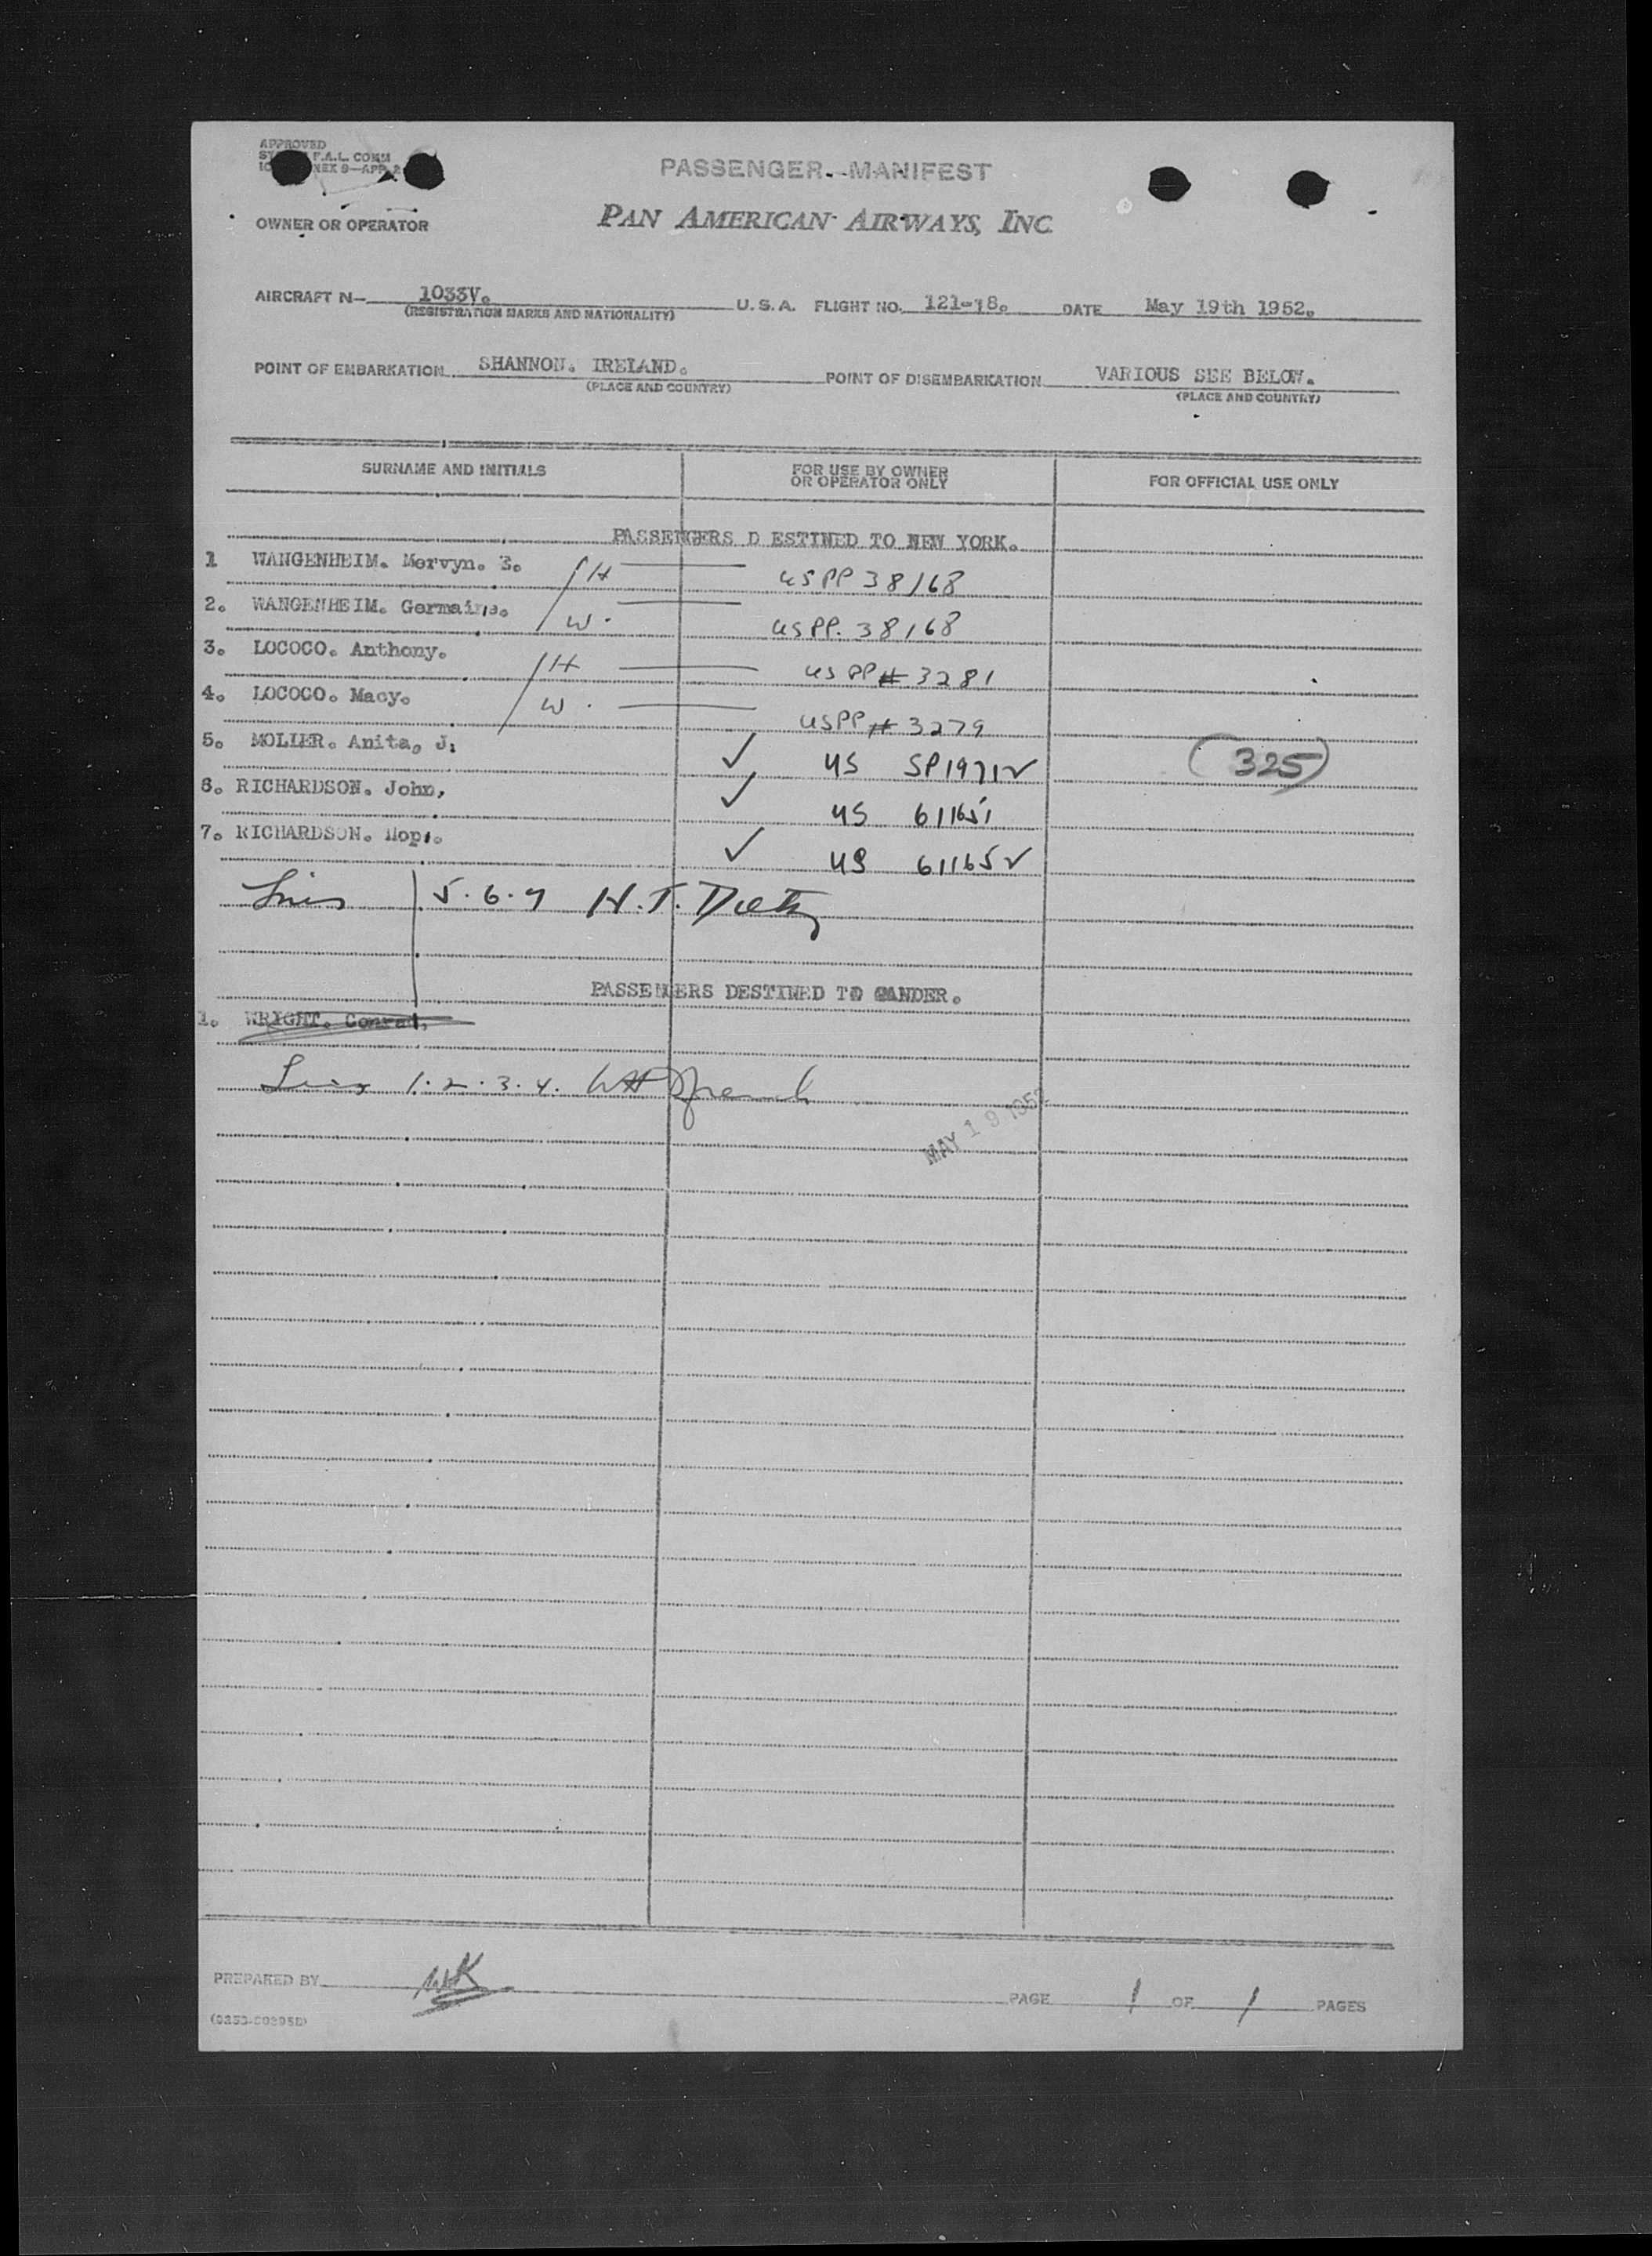 APPROVED
F.A.L. COMM
PASSENGER MANIFEST
OWNER OR OPERATOR
PAN AMERICAN AIRWAYS, INC
AIRCRAFT N— 1033V. U.S.A. FLIGHT NO. 121-18. DATE May 19th 1952.
(REGISTRATION MARKS AND NATIONALITY)
POINT OF EMBARKATION SHANNON. IRELAND. POINT OF DISEMBARKATION VARIOUS SEE BELOW.
(PLACE AND COUNTRY) (PLACE AND COUNTRY)
SURNAME AND INITIALS FOR USE BY OWNER OR OPERATOR ONLY FOR OFFICIAL USE ONLY
PASSENGERS D ESTINED TO NEW YORK.
1 WANGENHEIM. Mervyn. E. H USPP 38168
2. WANGENHEIM. Germaine. W. USPP. 38168
3. LOCOCO. Anthony. H US PP # 3281
4. LOCOCO. Macy. W. USPP # 3279
5. MOLLER. Anita, J. ✓ US SP1971✓ (325)
6. RICHARDSON. John, ✓ US 611651
7. RICHARDSON. ✓ US 61165✓
Lines 5.6.7 H.T.
PASSENGERS DESTINED TO GANDER.
1. WRIGHT. Conrad,
Lines 1.2.3.4.
MAY 19 1952
PREPARED BY WK PAGE 1 OF 1 PAGES